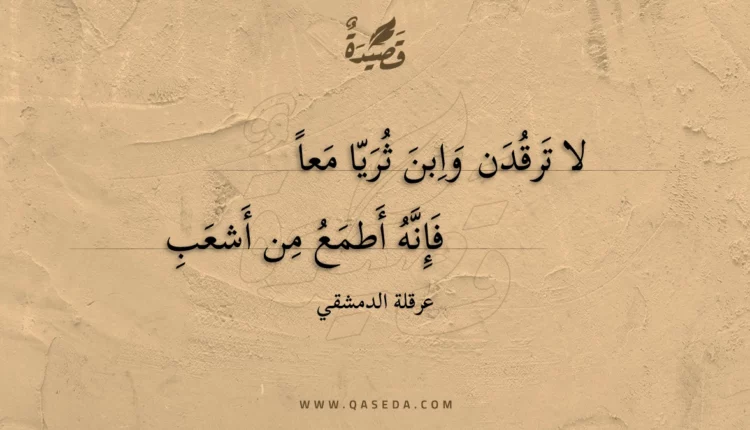 قَصِيْدَةٌ
لا تَرقُدَن وَاِبنَ ثُرَيّا مَعاً
فَإِنَّهُ أَطمَعُ مِن أَشعَبِ
عرقلة الدمشقي
WWW.QASEDA.COM